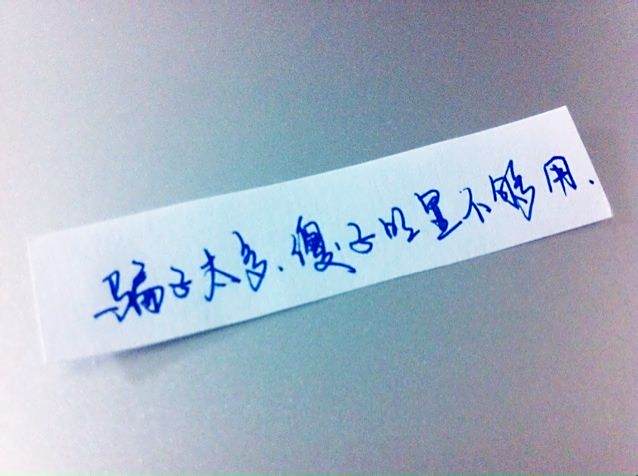 骗子太多、傻子明显不够用.